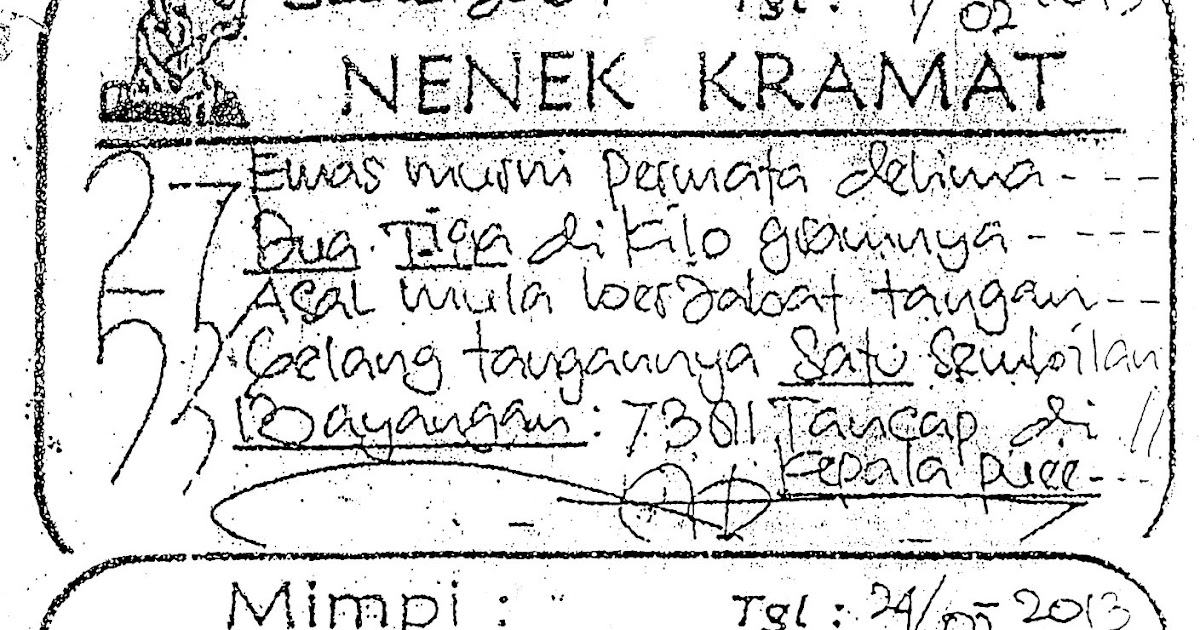 Tgl : / 02 2013
NENEK KRAMAT
Emas murni permata delima - - -
Dua Tiga di kilo gramnya - - - -
Asal mula berjabat tangan - - -
Gelang tangannya Satu Sembilan
Bayangan : 7381 Tancap di //
kepala piece - - -
Mimpi : Tgl : 24/ 2013